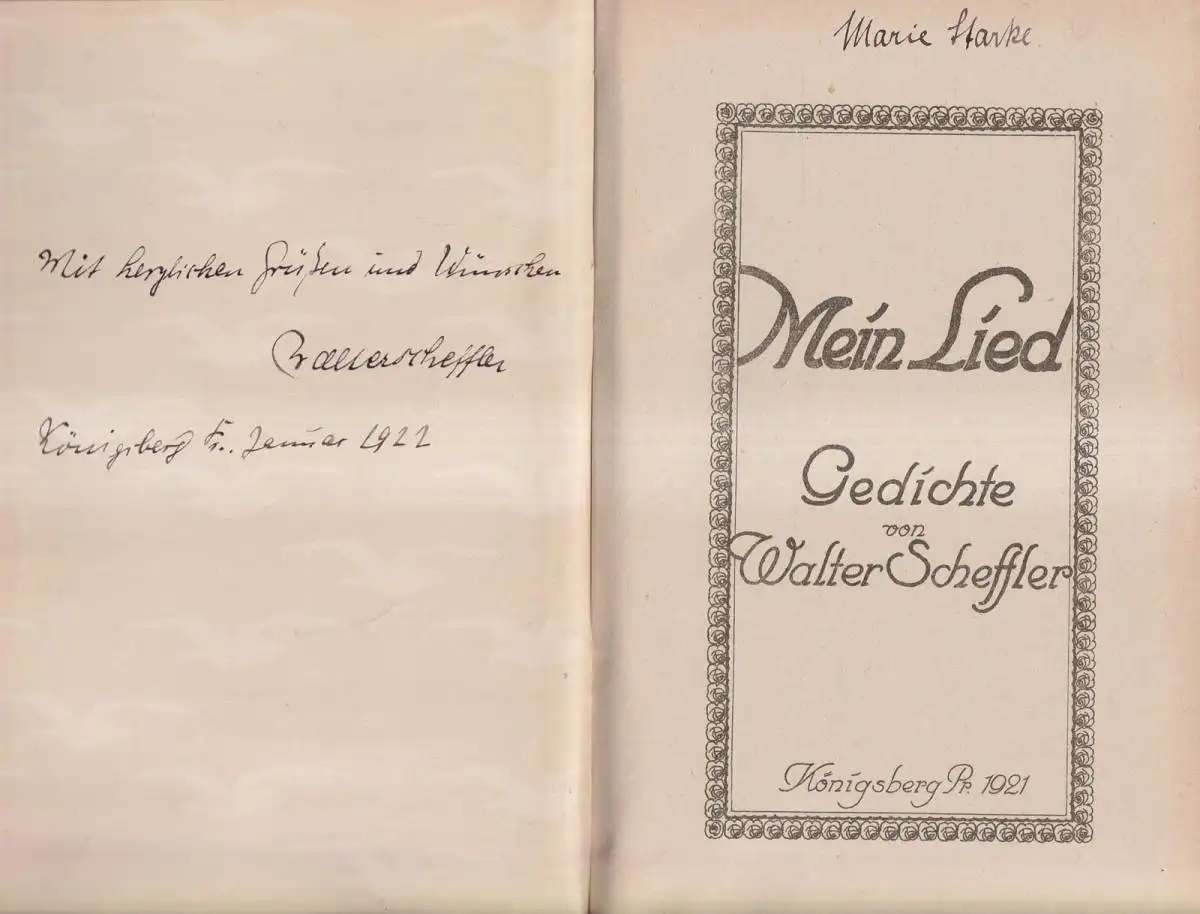 Mit herzlichen Grüßen und Wünschen
Walter Scheffler
Königsberg Pr. Januar 1922
Marie Starke
Mein Lied
Gedichte
von
Walter Scheffler
Königsberg Pr. 1921